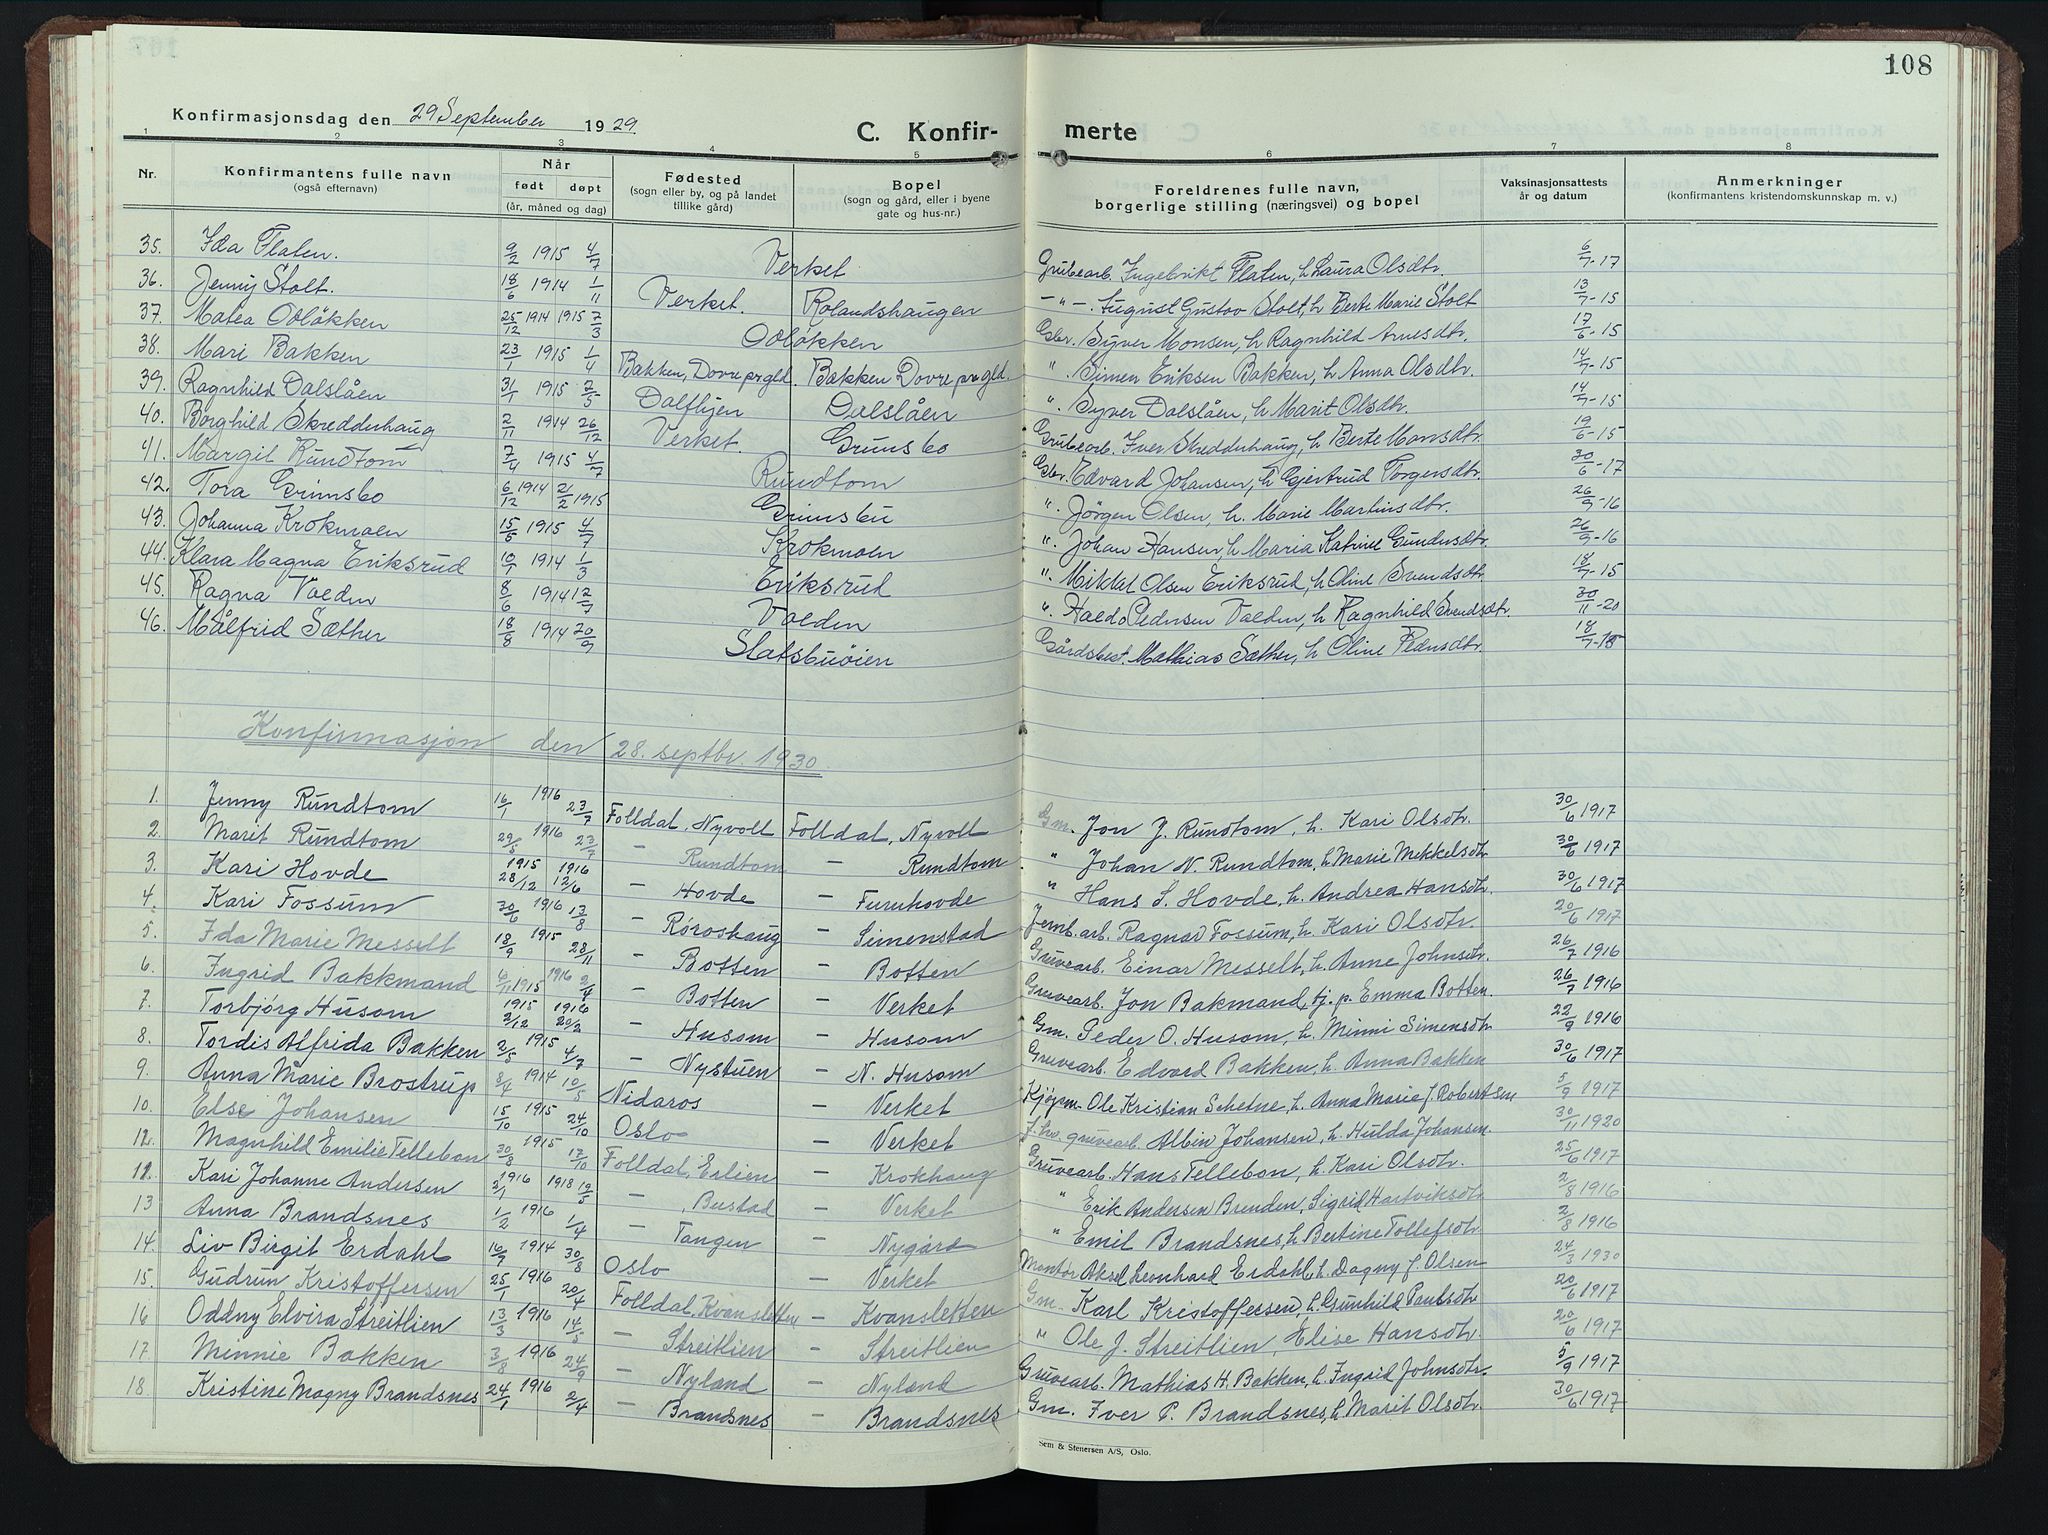 108
Konfirmasjonsdag den 29 September 1929
C. Konfir- merte
1 2 3 4 5 6 7 8
Nr. Konfirmantens fulle navn (også efternavn) Når født døpt (år, måned og dag) Fødested (sogn eller by, og på landet tillike gård) Bopel (sogn og gård, eller i byene gate og hus-nr.) Foreldrenes fulle navn, borgerlige stilling (næringsvei) og bopel Vaksinasjonsattests år og datum Anmerkninger (konfirmantens kristendomskunnskap m. v.)
35. Ida Flaten. 9/2 1915 4/7 Verket Grubearb. Ingebrikt Flaten, h. Laura Olsdtr. 6/7-17
36. Jenny Stolt. 18/6 1914 1/11 Verket. Rolandshaugen —"—. August Gustav Stolt, h Berte Marie Stolt 13/7-15
37. Matea Odløkken 25/12 1914 1915 7/3 Odløkken Gbr. Syver Monsen, h Ragnhild Arnesdtr. 17/6-15
38. Mari Bakken 23/1 1915 1/4 Bakken, Dovre prgld. Bakken Dovre prgld. ". Simen Eriksen Bakken, h Anna Olsdtr. 14/7-15
39. Ragnhild Dalslåen 31/1 1915 2/5 Dalslåen ". Syver Dalslåen, h Marit Olsdtr. 14/7-15
40. Borghild Skredderhaug 2/11 1914 26/12 Verket. Grimsbo Grubearb. Iver Skredderhaug, h Berte Monsdtr. 19/6-15
41. Margit Rundtom 7/4 1915 4/7 Rundtom Gbr. Edvard Johansen, h Gjertrud Torgersdtr. 30/6-17
42. Tora Grimsbo 6/12 1914 21/2 1915 Grimsbu ". Jørgen Olsen, h. Marie Martinsdtr. 26/9-16
43. Johanna Krokmoen 15/5 1915 4/7 Krokmoen ". Johan Hansen, h Maria Katrine Gundersdtr. 26/9-16
44. Klara Magna Eriksrud 10/1 1914 1/3 Eriksrud ". Mikkel Olsen Eriksrud, h Oline Svendsdtr. 18/7-15
45. Ragna Volden 8/6 1914 12/7 Volden ". Haldo Pedersen Volden, h Ragnhild Svendsdtr. 30/11-20
46. Målfrid Sæther 18/8 1914 20/9 Slatsbuøien Gårdsbest. Mathias Sæther, h Oline Pedersdtr. 18/7-15
Konfirmasjon den 28. septbr. 1930.
1. Jenny Rundtom 16/1 1916 23/7 Folldal, Nyvolt Folldal, Nyvolt Gm. Jon J. Rundtom, h. Kari Olsdtr. 30/6 1917
2. Marit Rundtom 29/5 1916 23/7 — Rundtom — Rundtom " Johan N. Rundtom, h Marie Mikkelsdtr 30/6 1917
3. Kari Hovde 1915 28/12 1916 12/6 — Hovde — Furuhovde " Hans S. Hovde, h. Andrea Hansdtr. 30/6 1917
4. Kari Fossum 30/6 1916 13/8 — Røroshaug — Simenstad Jernb.arb. Ragnar Fossum, h. Kari Olsdtr. 20/6 1917
5. Ida Marie Messelt 18/9 1915 28/11 — Botten — Botten Gruvearb. Einar Messelt, h. Anne Johnsdtr. 26/7 1916
6. Ingrid Bakkmand 6/11 1915 1916 2/4 — Botten — Verket Gruvearb. Jon Bakmand, tj. p. Emma Botten. 26/7 1916
7. Torbjørg Husom 1915 2/12 1916 20/2 — Husom — Husom Gm. Peder O. Husom, h. Minni Simensdtr 22/9 1916
8. Tordis Alfrida Bakken 2/5 1915 4/7 — Nystuen — N. Husom Gruvearb. Edvard Bakken, h. Anna Bakken 30/6 1917
9. Anna Marie Brostrup 8/4 1914 10/5 Nidaros — Verket Kjøpm. Ole Kristian Schetne, h. Anna Marie f. Robertsen 5/9 1917
10. Else Johansen 15/10 1915 24/10 Oslo — Verket f. hv. gruvearb. Albin Johansen, h. Hulda Johansen. 30/11 1920
11. Magnhild Emilie Tellebon 30/8 1915 17/10 Folldal, Erlien — Krokhaug Gruvearb. Hans Tellebon, h. Kari Olsdtr. 25/6 1917
12. Kari Johanne Andersen 2/1 1916 1918 19/5 — , Bustad — Verket " Erik Andersen Brenden, Sigrid Hartviksdtr 2/8 1916
13 Anna Brandsnes 1/2 1916 1/4 — Tangen — Nygård " Emil Brandsnes, h Bertine Tollefsdtr. 2/8 1916
14. Liv Birgit Erdahl 16/7 1914 30/8 Oslo — Verket Montør Aksel Leonhard Erdahl, h. Dagny f. Olsen 24/3 1930
15. Gudrun Kristoffersen 25/1 1916 20/4 Folldal, Kvansletten — Kvansletten Gm. Karl Kristoffersen, h. Gunhild Paulsdtr 20/6 1917
16 Oddny Elvira Streitlien 13/3 1916 14/5 — Streitlien — Streitlien " Ole J. Streitlien, Elise Hansdtr. 20/6 1917
17. Minnie Bakken 3/8 1916 24/9 — Nyland — Nyland Gruvearb. Mathias H. Bakken, h. Ingrid Johnsdtr. 5/9 1917
18. Kristine Magny Brandsnes 24/1 1916 2/4 — Brandsnes — Brandsnes Gm. Iver P. Brandsnes, h Marit Olsdtr. 30/6 1917
Sem & Stenersen A/S, Oslo.